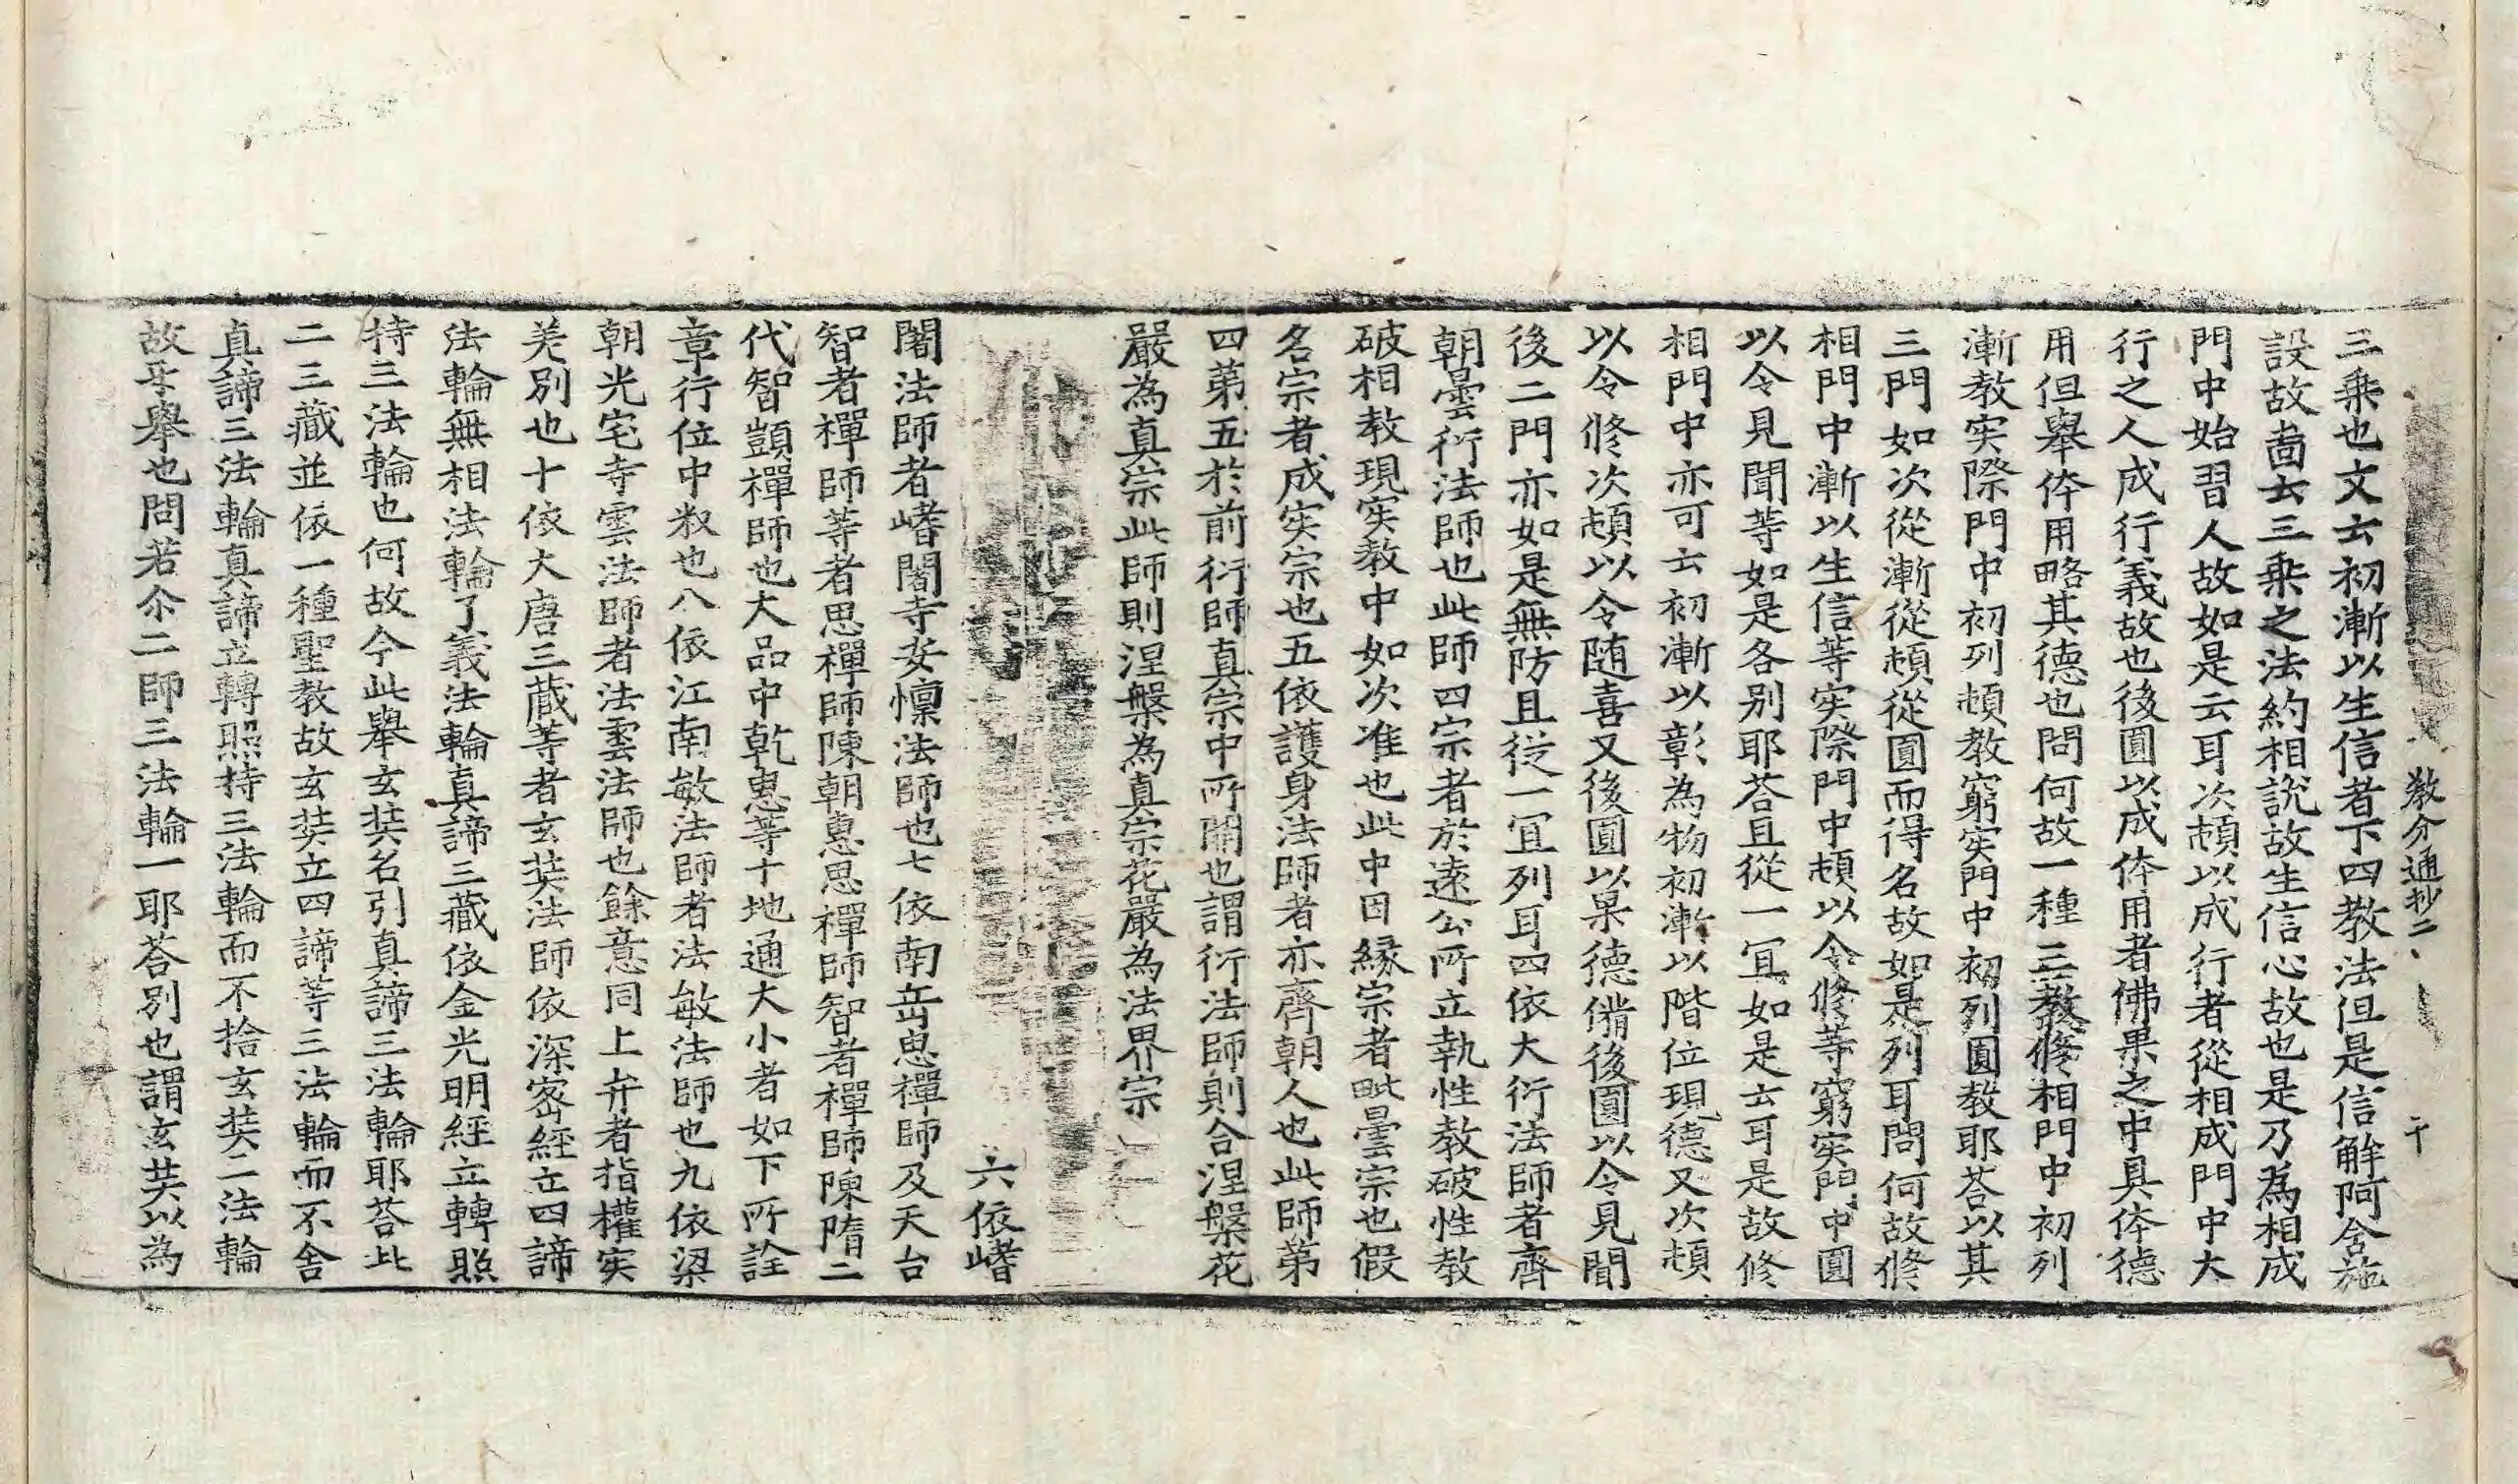 教分通抄二、　　　十
三乗也文云初漸以生信者下四教法但是信解阿含施
設故啚云三乗之法約相說故生信心故也是乃為相成
門中始習人故如是云耳次頓以成行者從相成門中大
行之人成行義故也後圓以成体用者佛果之中具体德
用但舉体用略其德也問何故一種三教修相門中初列
漸教実際門中初列頓教窮実門中初列圓教耶荅以其
三門如次從漸從頓從圓而得名故如是列耳問何故修
相門中漸以生信等実際門中頓以令修等窮実門中圓
以令見聞等如是各别耶荅且從一冝如是云耳是故修
相門中亦可云初漸以彰為物初漸以階位現德又次頓
以令修次頓以令随喜又後圓以果德備後圓以令見聞
後二門亦如是無防且従一冝列耳四依大衍法師者齊
朝曇衍法師也此師四宗者於遠公所立執性教破性教
破相教現実教中如次准也此中因緣宗者毗曇宗也假
名宗者成実宗也五依護身法師者亦齊朝人也此師第
四第五於前衍師真宗中所開也謂衍法師則合涅槃花
嚴為真宗此師則涅槃為真宗花嚴為法界宗
六依嗜
闍法師者嗜闍寺安懍法師也七依南岳思禪師及天台
智者禪師等者思禪師陳朝惠思禪師智者禪師陳隋二
代智顗禪師也大品中乾惠等十地通大小者如下所詮
章行位中叙也八依江南敏法師者法敏法師也九依梁
朝光宅寺雲法師者法雲法師也餘意同上弁者指權実
差別也十依大唐三蔵等者玄奘法師依深密經立四諦
法輪無相法輪了義法輪真諦三藏依金光明經立轉照
持三法輪也何故今此舉玄奘名引真諦三法輪耶荅此
二三藏並依一種聖教故玄奘立四諦等三法輪而不舎
真諦三法輪真諦立轉照持三法輪而不捨玄奘二法輪
故㸦舉也問若尒二師三法輪一耶荅別也謂玄奘以為